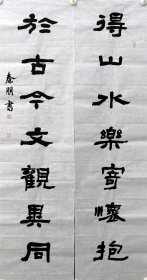 得山水樂寄懷抱
於古今文觀異同
春朋書